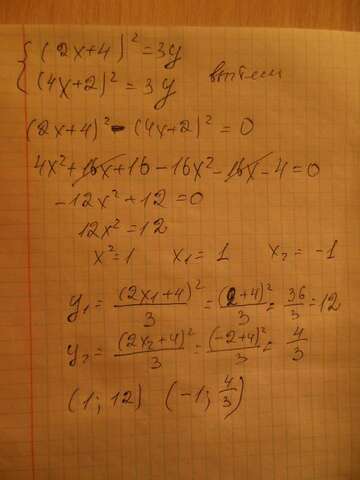 { (2x+4)² = 3y
(4x+2)² = 3y вычтем
(2x+4)² - (4x+2)² = 0
4x² + 16x + 16 - 16x² - 16x - 4 = 0
-12x² + 12 = 0
12x² = 12
x² = 1 x₁ = 1 x₂ = -1
y₁ = (2x₁+4)²/3 = (2+4)²/3 = 36/3 = 12
y₂ = (2x₂+4)²/3 = (-2+4)²/3 = 4/3
(1; 12) (-1; 4/3)